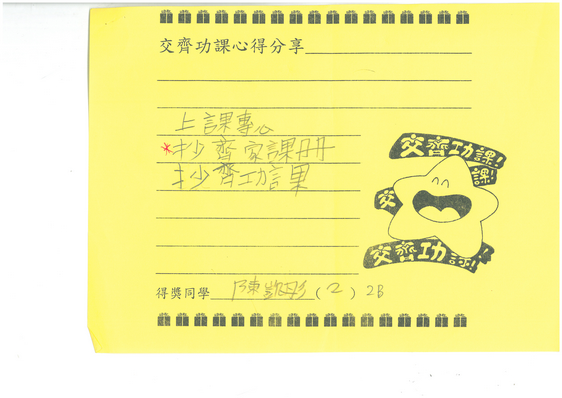 交齊功課心得分享
上課專心
*抄齊家課冊
抄齊功課
交齊功課!
課!
交
交齊功課!
得獎同學 陳凱彤 (2) 2B